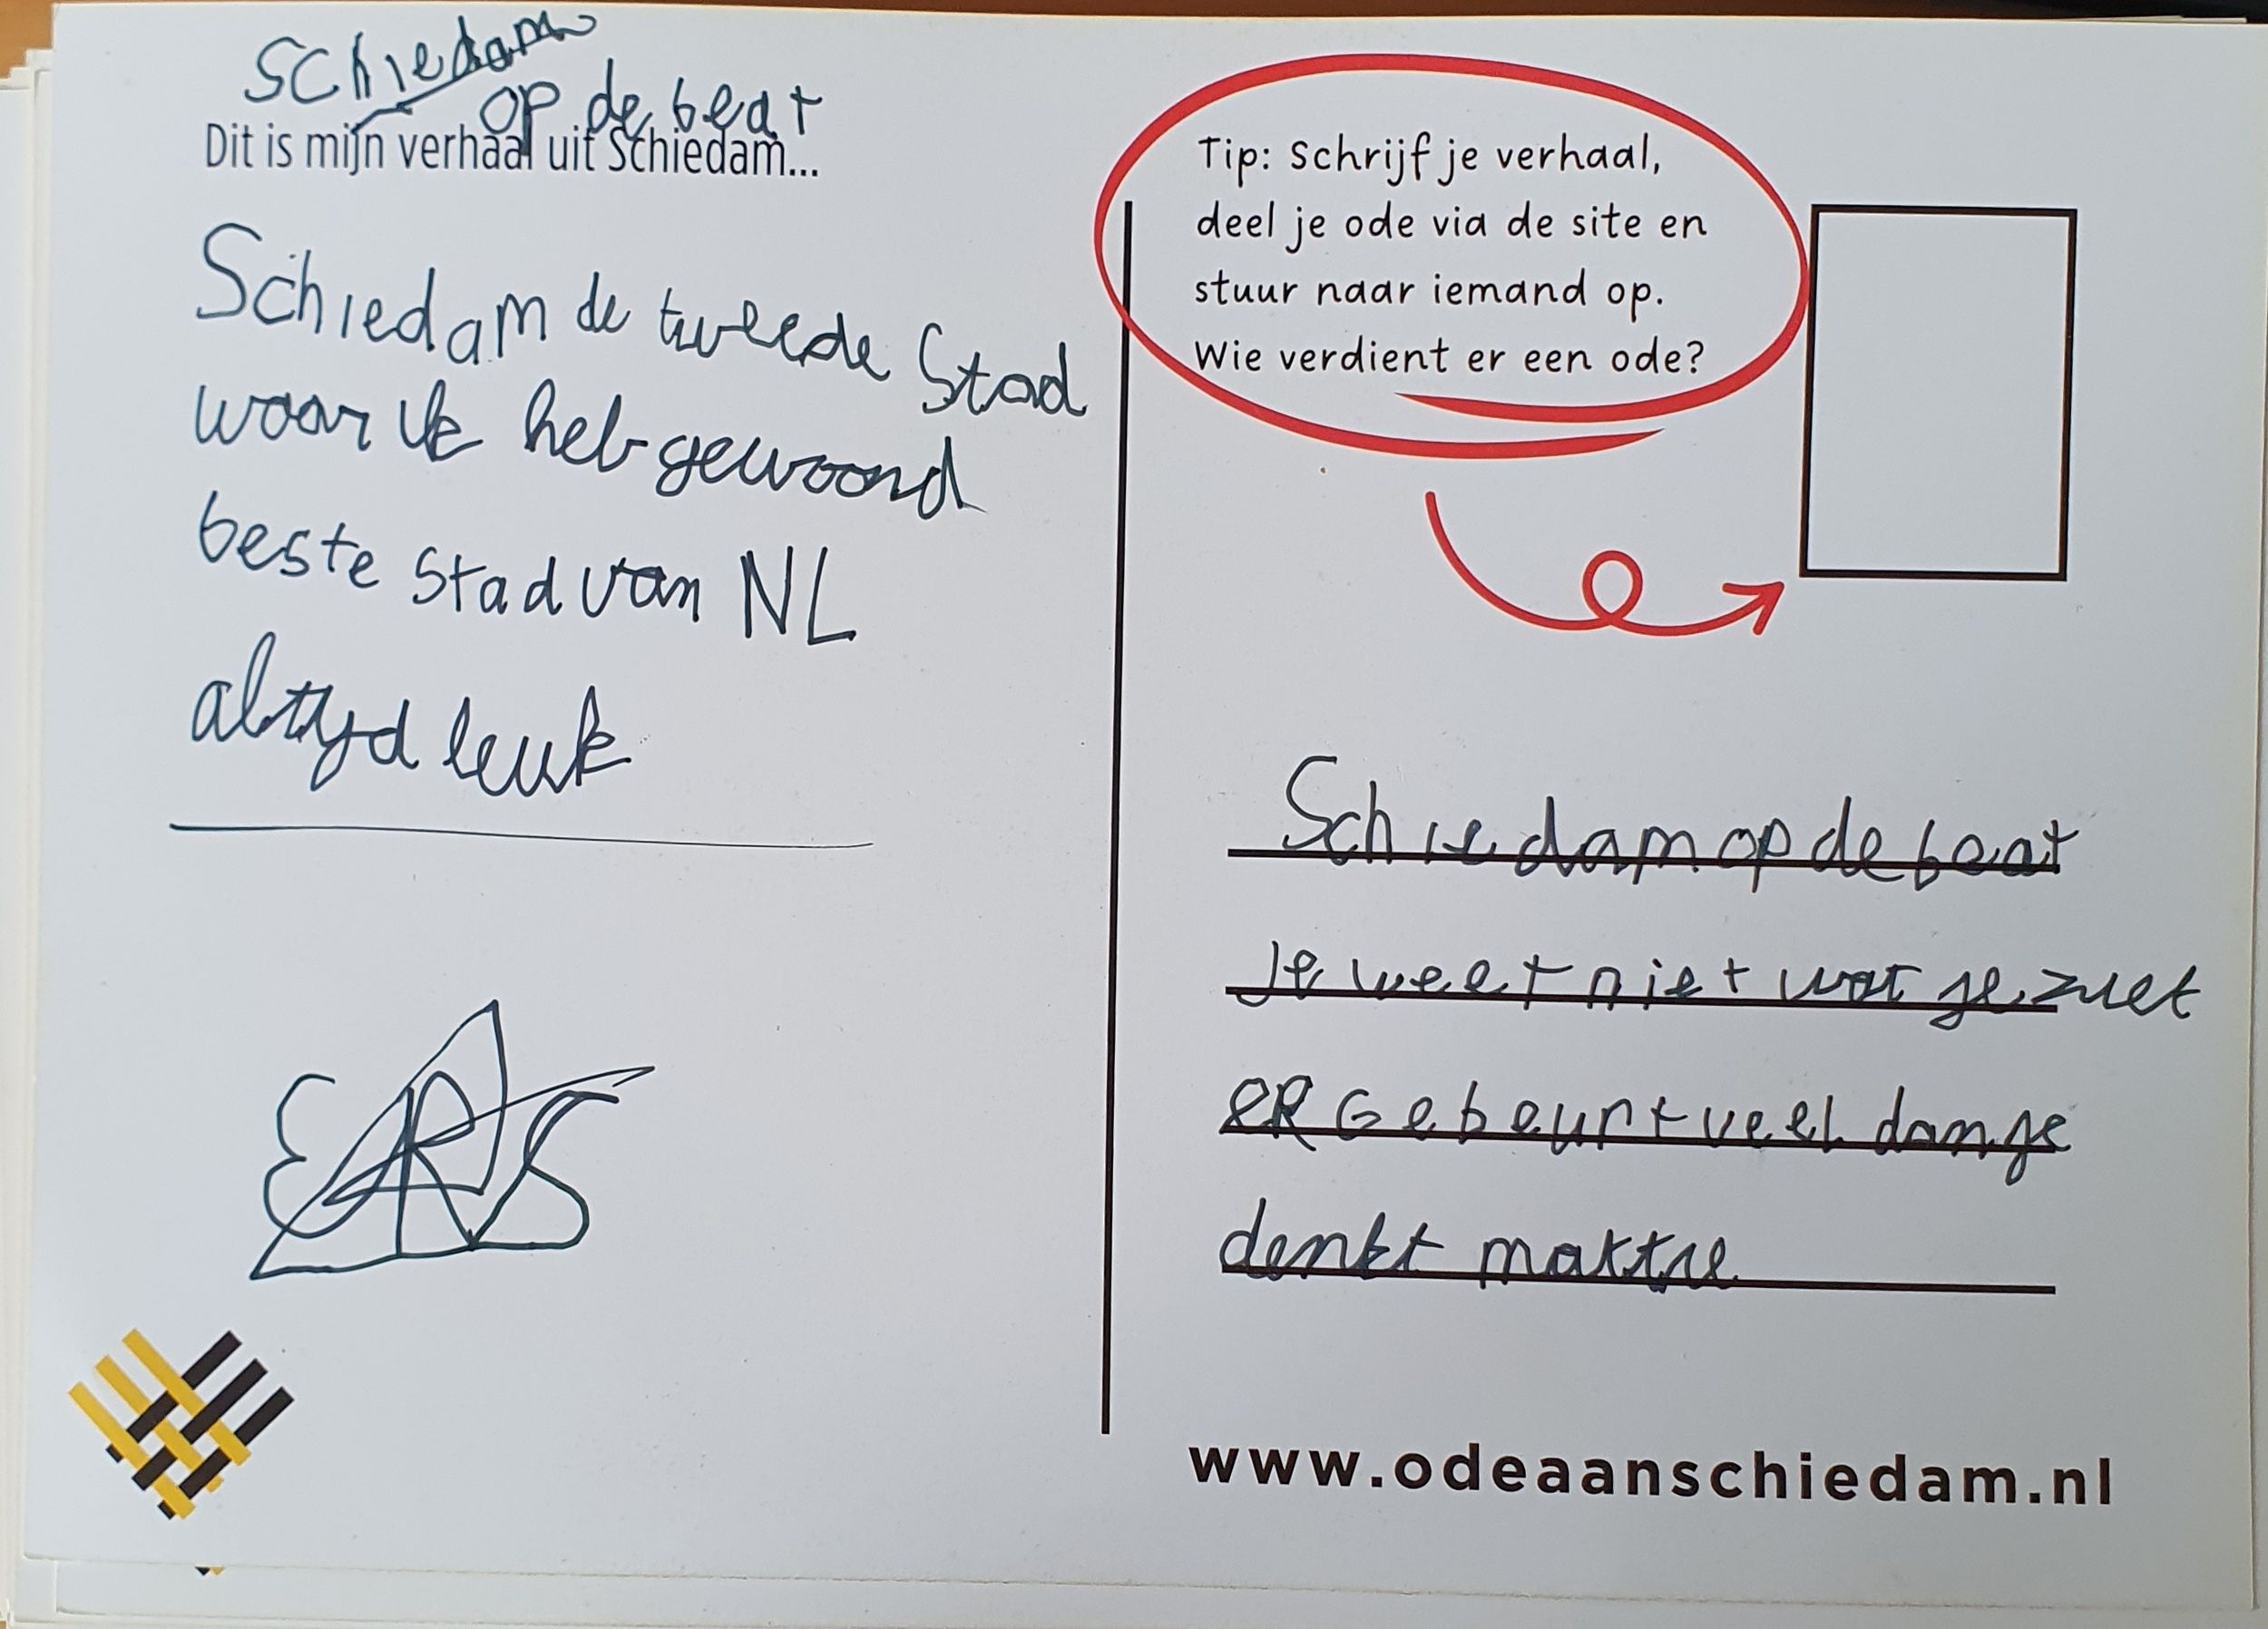 Schiedam
op de beat
Dit is mijn verhaal uit Schiedam...
Schiedam de tweede Stad
waar ik heb gewoond
beste Stad van NL
altyd leuk
Tip: Schrijf je verhaal,
deel je ode via de site en
stuur naar iemand op.
Wie verdient er een ode?
Schiedam op de beat
Je weet niet wat je ziet
eR Gebeurt veel dan je
denkt
www.odeaanschiedam.nl